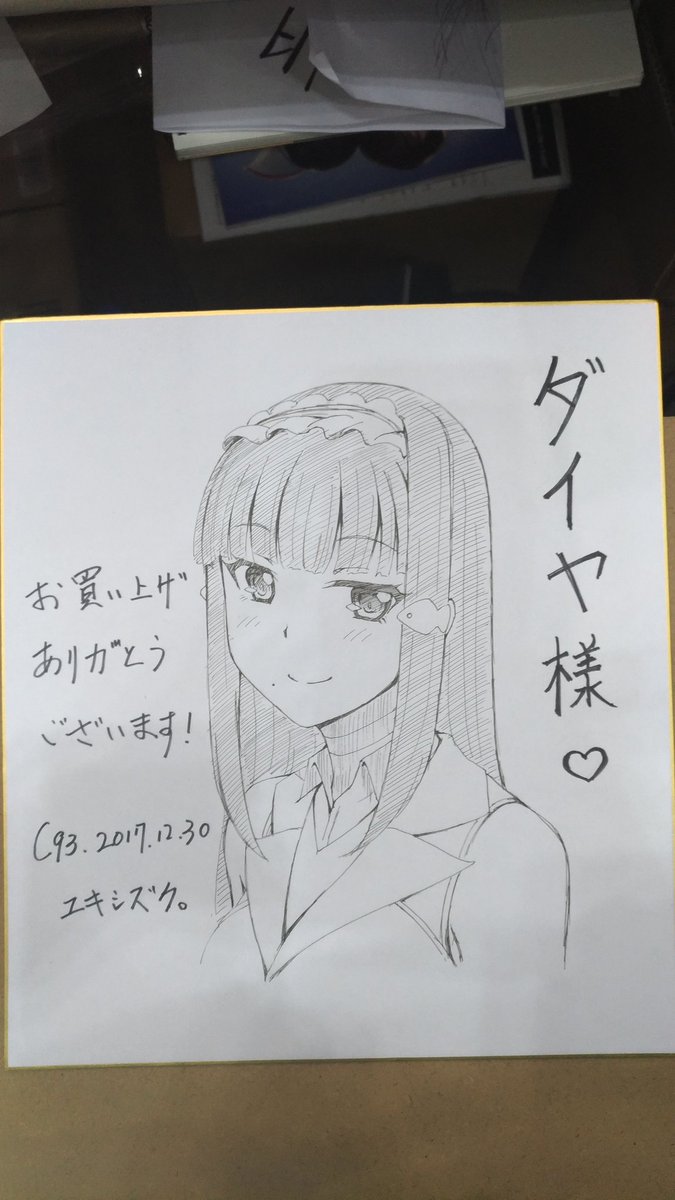 ダイヤ様♡
お買い上げ
ありがとう
ございます!
C93.2017.12.30
ユキシズク。